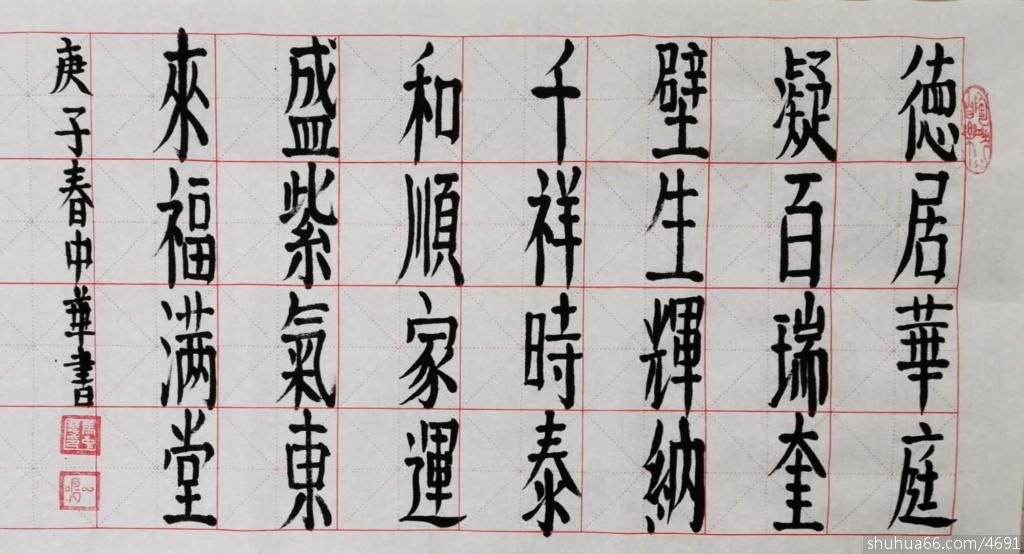 德居華庭
凝百瑞奎
壁生輝納
千祥時泰
和順家運
盛紫氣東
來福满堂
庚子春中華書
shuhua66.com/4691